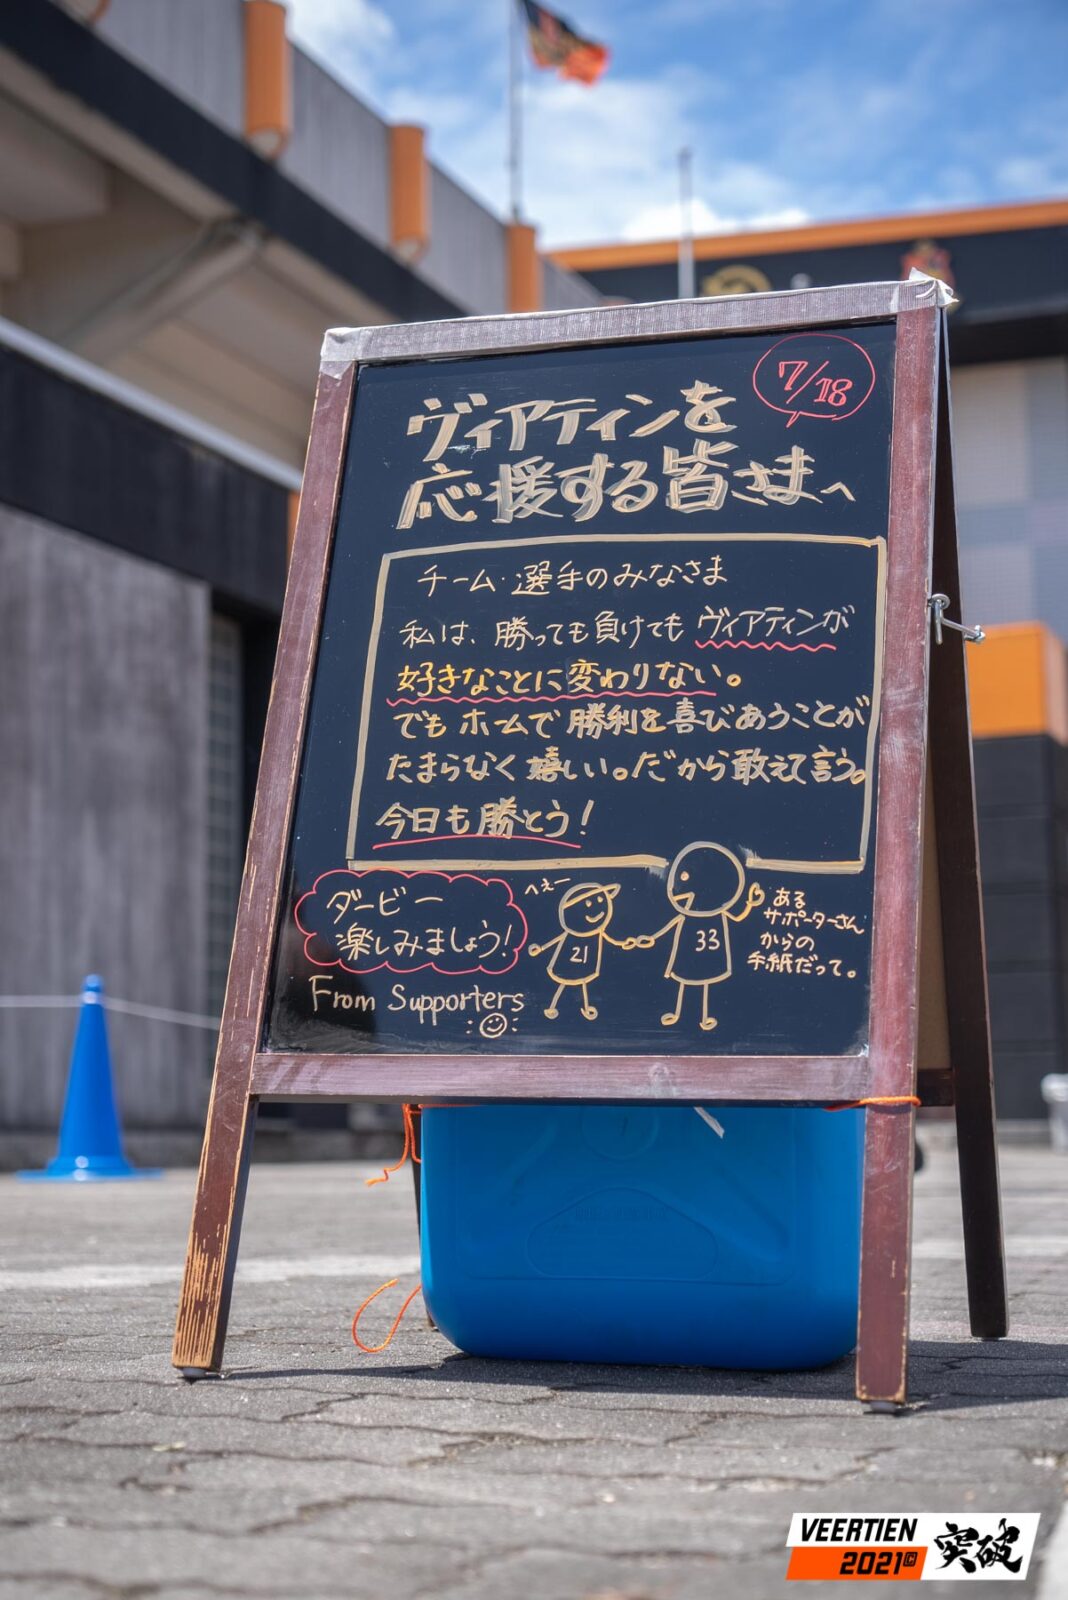 7/18
ヴィアティンを
応援する皆さまへ
チーム・選手のみなさま
私は、勝っても負けても ヴィアティンが
好きなことに変わりない。
でも ホームで 勝利を喜びあうことが
たまらなく嬉しい。だから敢えて言う。
今日も勝とう!
ダービー
楽しみましょう!
From Supporters
へぇー
21
33
ある
サポーターさん
からの
手紙だって。
VEERTIEN
2021
突破